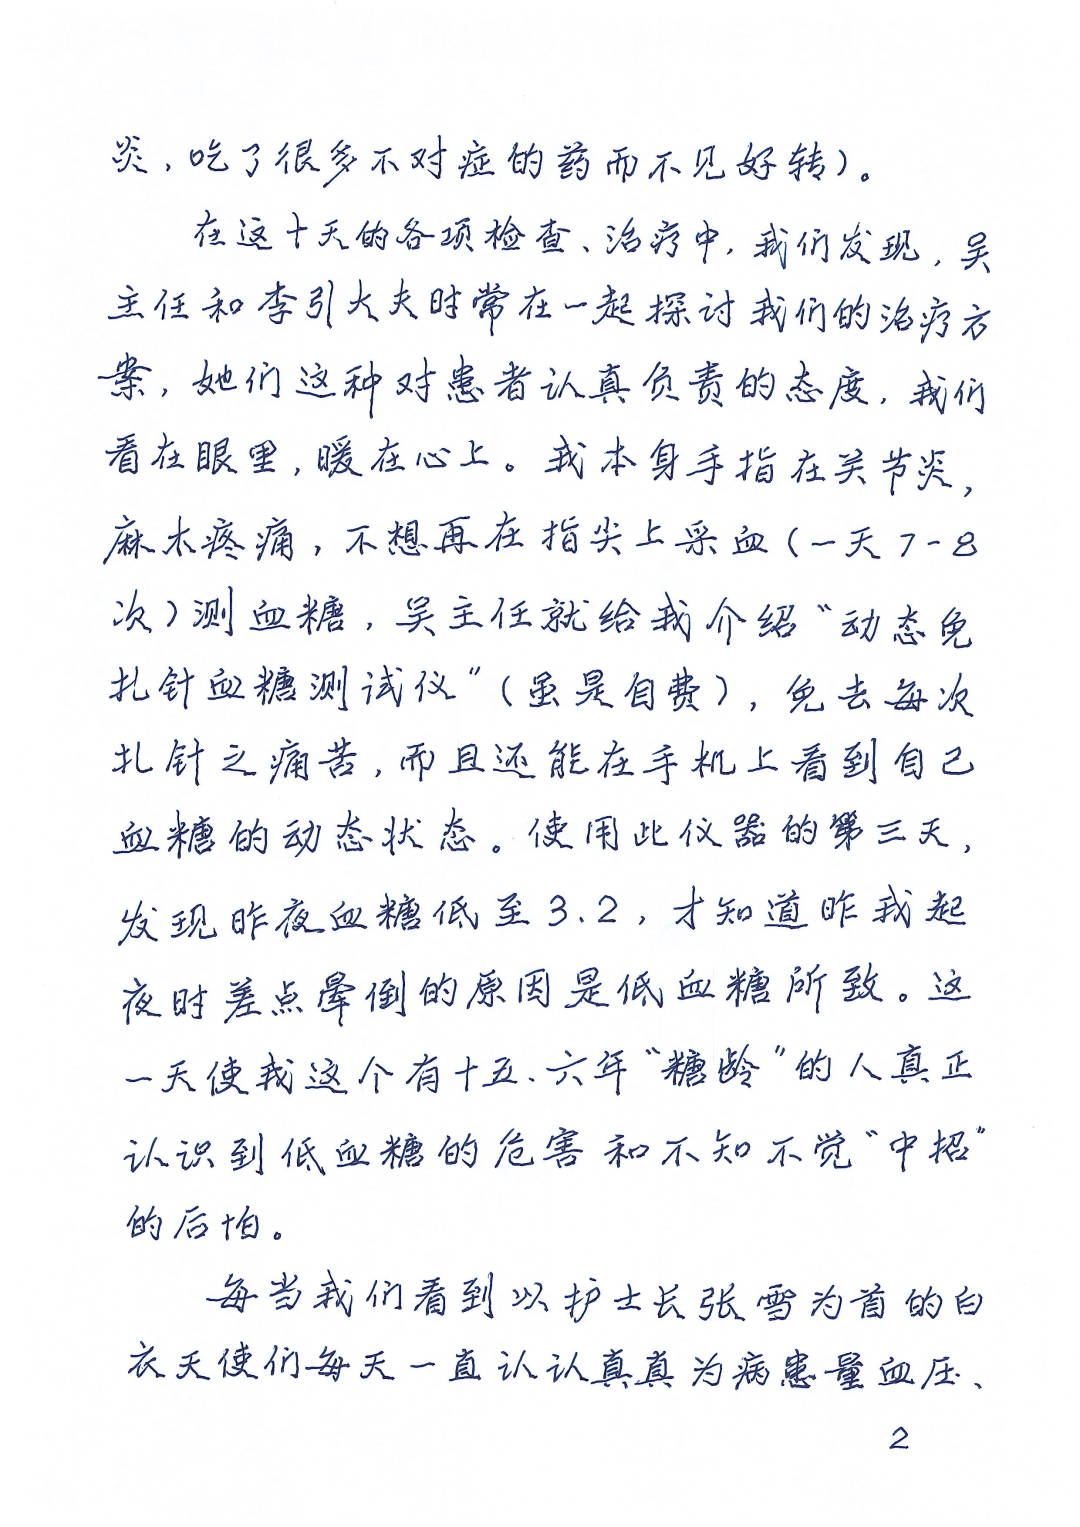 炎，吃了很多不对症的药而不见好转）。
在这十天的各项检查、治疗中，我们发现，吴
主任和李引大夫时常在一起探讨我们的治疗方
案，她们这种对患者认真负责的态度，我们
看在眼里，暖在心上。我本身手指在关节炎，
麻木疼痛，不想再在指尖上采血（一天7-8
次）测血糖，吴主任就给我介绍“动态免
扎针血糖测试仪”（虽是自费），免去每次
扎针之痛苦，而且还能在手机上看到自己
血糖的动态状态。使用此仪器的第三天，
发现昨夜血糖低至3.2，才知道昨我起
夜时差点晕倒的原因是低血糖所致。这
一天使我这个有十五、六年“糖龄”的人真正
认识到低血糖的危害和不知不觉“中招”
的后怕。
每当我们看到以护士长张雪为首的白
衣天使们每天一直认认真真为病患量血压、
2